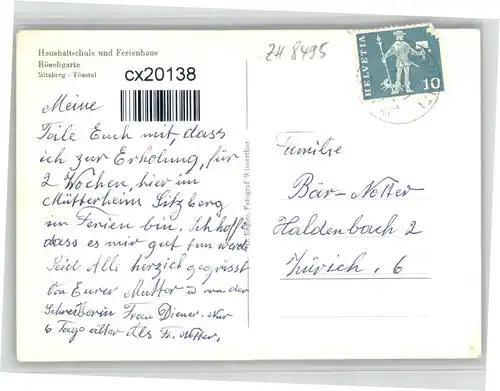 Haushaltschule und Ferienhaus
Röseligarte
Sitzberg - Tösstal
cx20138
ZH 8495
HELVETIA
10
Meine
Teile Euch mit, dass
ich zur Erholung, für
2 Wochen, hier im
Mütterheim Sitzberg
in Ferien bin. Ich hoffe
dass es mir gut tun werde
Seid Alli herzich gegrüsst
von Eurer Mutter u von der
Schreiberin Frau Diener. Nur
6 Tage älter als Fr. Notter.
Fotograf Winterthur
Familie
Bär-Notter
Haldenbach 2
Zürich. 6